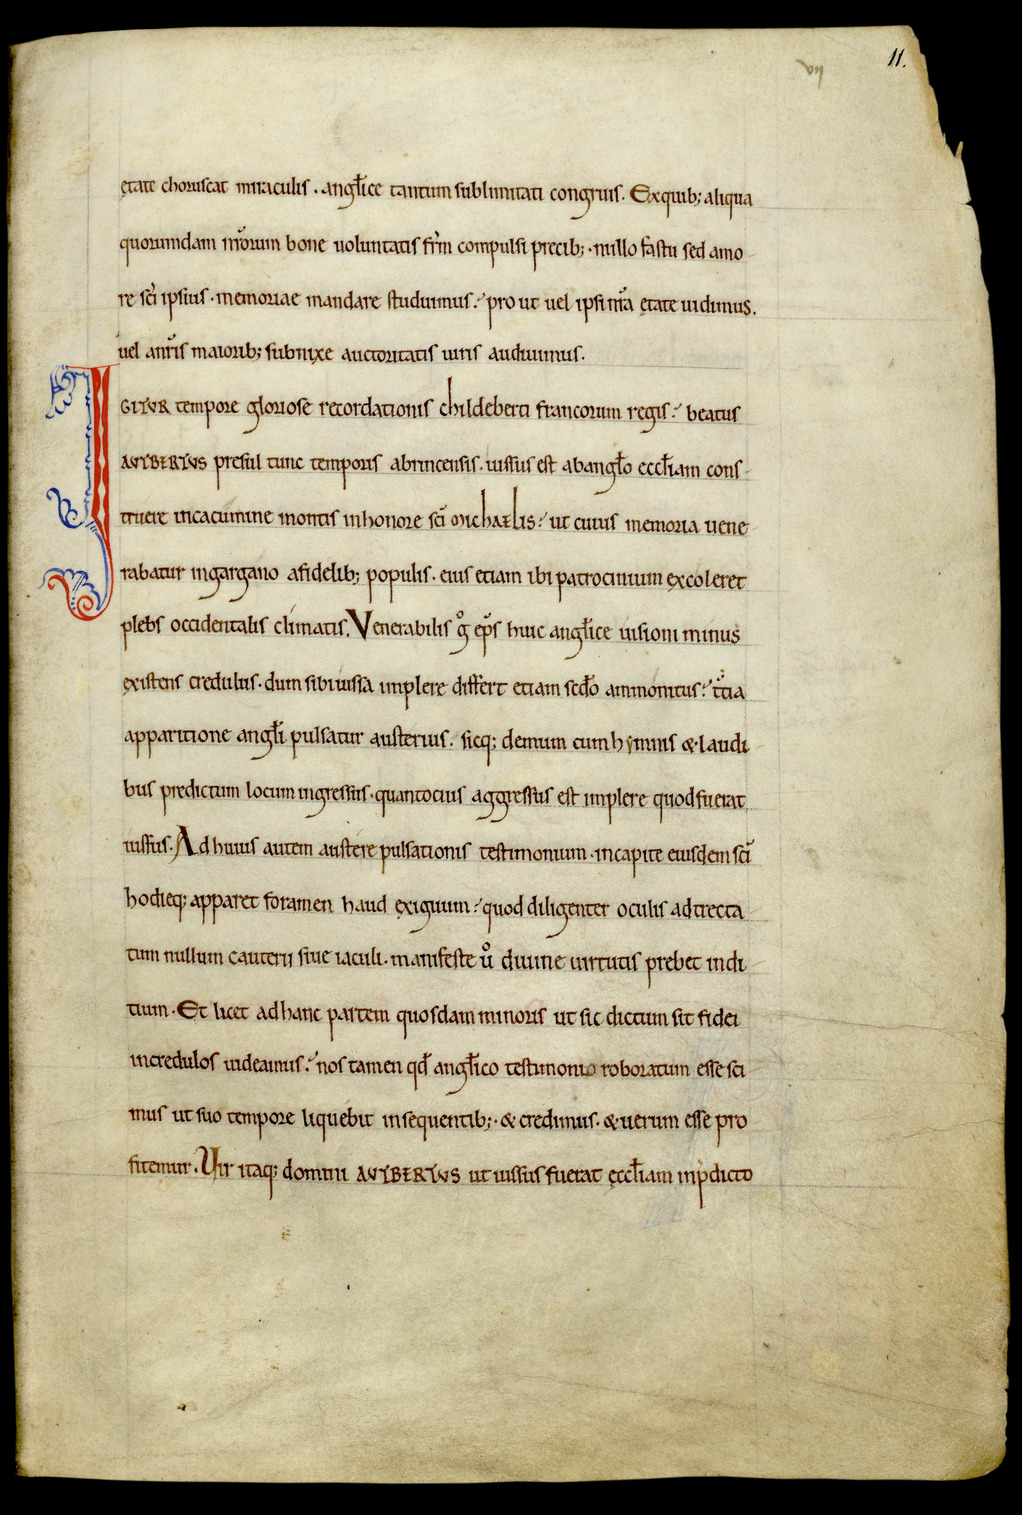 vij
11.
ętate choruscat miraculis . angl̄ice tantum sublimitati congruis. Ex quib; aliqua
quorumdam nr̄orum bone uoluntatis fr̄m compulsi precib; . nullo fastu sed amo
re sc̄i ipsius . memoriae mandare studuimus . pro ut uel ipsi nr̄a ętate uidimus.
uel a nr̄is maiorib; subnixe auctoritatis uiris audiuimus.
IGITUR tempore gloriose recordationis childeberti francorum regis . beatus
AUTBERTUS presul tunc temporis abrincensis . iussus est ab angl̄o eccl̄iam cons
truere in cacumine montis in honore sc̄i Michaelis . ut cuius memoria uene
rabatur in gargano a fidelib; populis . eius etiam ibi patrocinium excoleret
plebs occidentalis climatis. Venerabilis gͦ ep̄s huic angl̄ice uisioni minus
existens credulus . dum sibi iussa implere differt etiam sc̄do ammonitus . t̄cia
apparitione angl̄i pulsatur austerius . sicq; demum cum hymnis & laudi
bus predictum locum ingressus . quantocius aggressus est implere quod fuerat
iussus . Ad huius autem austere pulsationis testimonium . in capite eiusdem sc̄i
hodieq; apparet foramen haud exiguum . quod diligenter oculis adtrecta
tum nullum cauterii siue iaculi . manifeste uͦ diuine uirtutis prebet indi
tium . Et licet ad hanc partem quosdam minoris ut sic dictum sit fidei
incredulos uideamus . nos tamen qd̄ angl̄ico testimonio roboratum esse sci
mus ut suo tempore liquebit in sequentib; . & credimus . & uerum esse pro
fitemur . Vir itaq; domini AUTBERTUS ut iussus fuerat ęccl̄iam in p̄dicto